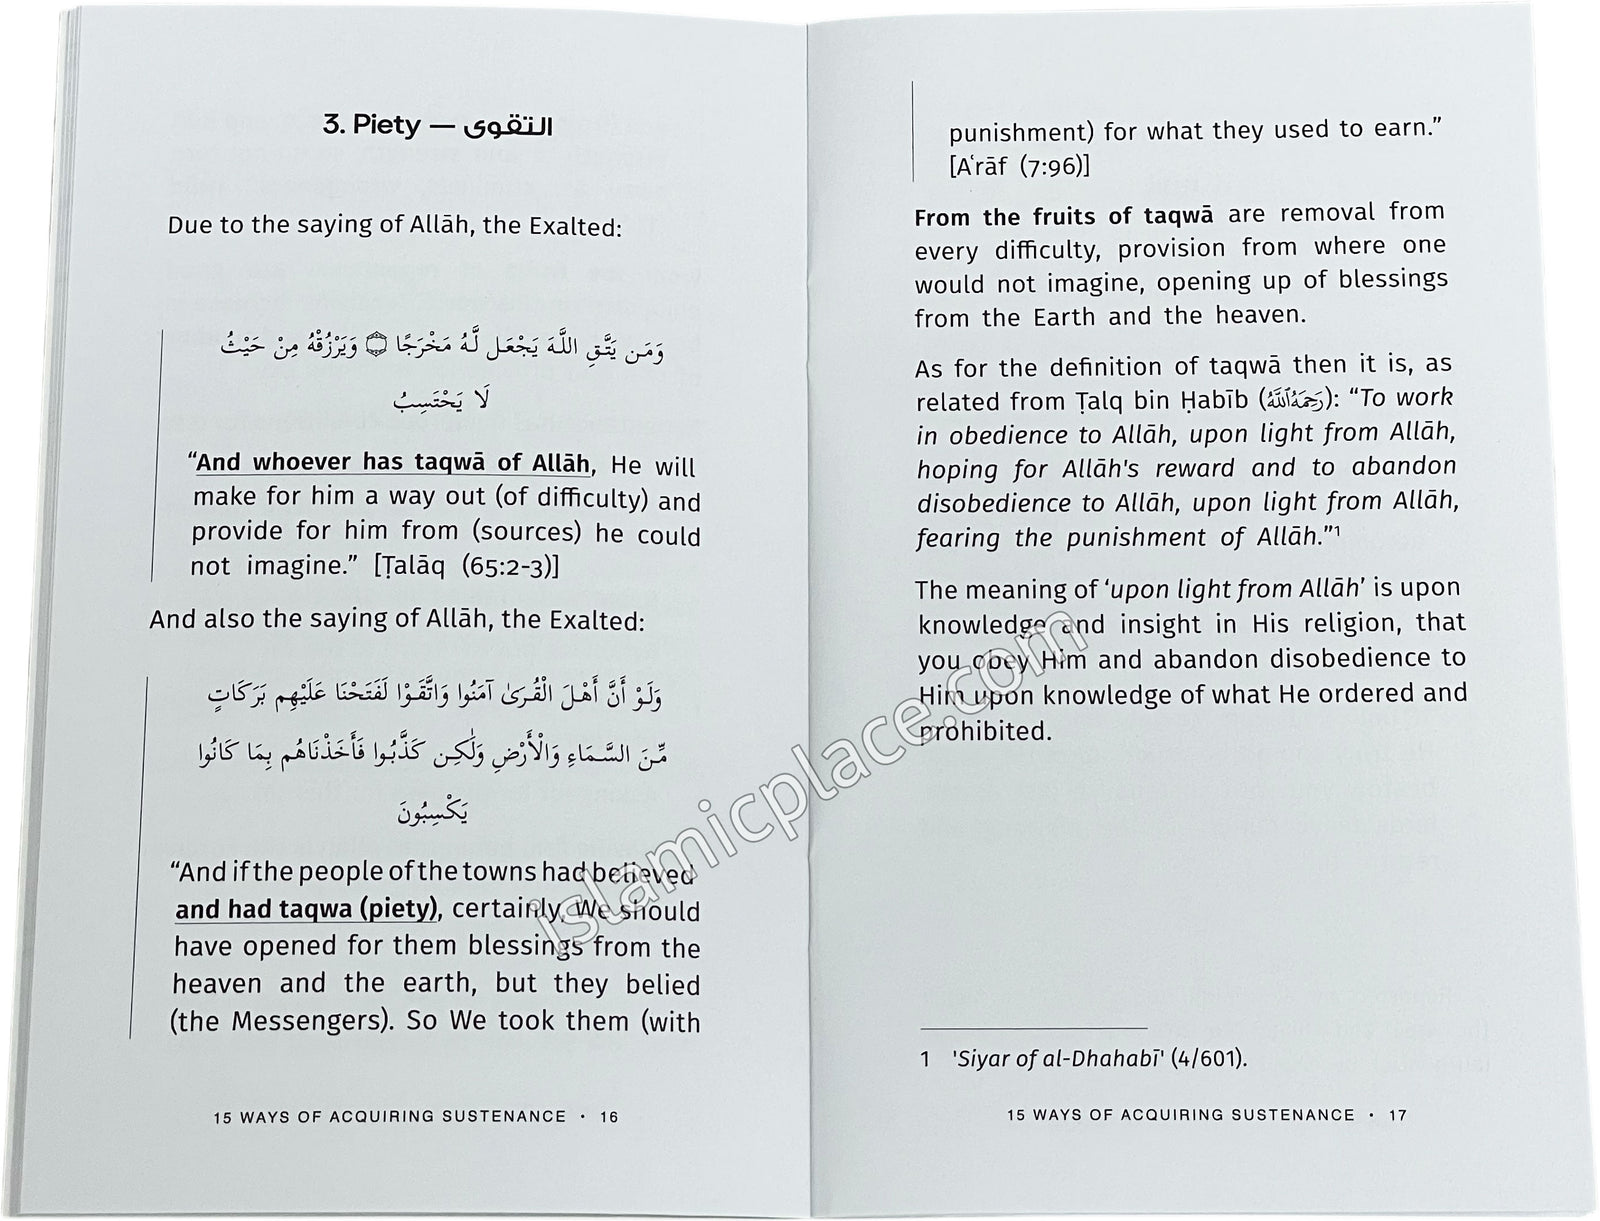 3. Piety — التقوى
Due to the saying of Allāh, the Exalted:
وَمَن يَتَّقِ اللَّهَ يَجْعَل لَّهُ مَخْرَجًا ۝ وَيَرْزُقْهُ مِنْ حَيْثُ
لَا يَحْتَسِبُ
“And whoever has taqwā of Allāh, He will
make for him a way out (of difficulty) and
provide for him from (sources) he could
not imagine.” [Ṭalāq (65:2-3)]
And also the saying of Allāh, the Exalted:
وَلَوْ أَنَّ أَهْلَ الْقُرَىٰ آمَنُوا وَاتَّقَوْا لَفَتَحْنَا عَلَيْهِم بَرَكَاتٍ
مِّنَ السَّمَاءِ وَالْأَرْضِ وَلَٰكِن كَذَّبُوا فَأَخَذْنَاهُم بِمَا كَانُوا
يَكْسِبُونَ
“And if the people of the towns had believed
and had taqwa (piety), certainly, We should
have opened for them blessings from the
heaven and the earth, but they belied
(the Messengers). So We took them (with
15 WAYS OF ACQUIRING SUSTENANCE • 16
punishment) for what they used to earn.”
[Aʿrāf (7:96)]
From the fruits of taqwā are removal from
every difficulty, provision from where one
would not imagine, opening up of blessings
from the Earth and the heaven.
As for the definition of taqwā then it is, as
related from Ṭalq bin Ḥabīb (رَحِمَهُ ٱللَّهُ): “To work
in obedience to Allāh, upon light from Allāh,
hoping for Allāh's reward and to abandon
disobedience to Allāh, upon light from Allāh,
fearing the punishment of Allāh.”¹
The meaning of ‘upon light from Allāh’ is upon
knowledge and insight in His religion, that
you obey Him and abandon disobedience to
Him upon knowledge of what He ordered and
prohibited.
1 'Siyar of al-Dhahabī' (4/601).
15 WAYS OF ACQUIRING SUSTENANCE • 17
islamicplace.com